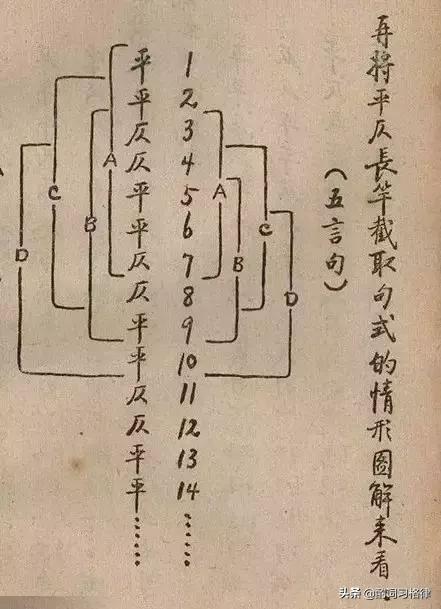 再將平仄長竿截取句式的情形圖解来看.
（五言句）
平 1
平 2
仄 3
仄 4
A 平 5 A
B 平 6
C 仄 7 B C
D 仄 8 D
平 9
平 10
仄 11
仄 12
平 13
平 14
…… ……
头条 @词习格律